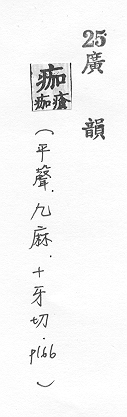 25廣韻
痂
瘡
痂
(平聲.九麻.十牙切.p166)